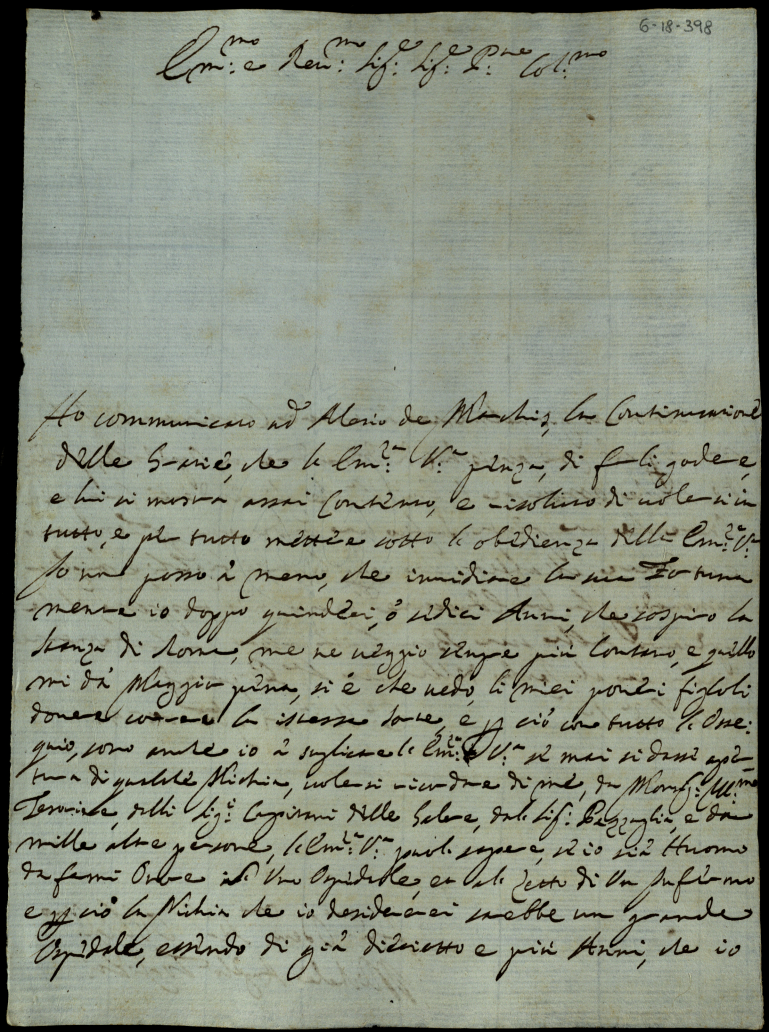 6-18-398
Em:mo e Reu:mo Sig:e Sig:e P:ne Col:mo
Ho communicato ad Alesio de Marchis, la Continuatione
delle Gratie, che la Em:za V:a penza, di farli godere,
e lui si mostra assai Contento, e risoluto di uolersi in
tutto, e per tutto mettere sotto la obedienza della Em:za V:a
Io non posso à meno, che inuidiare la sua Fortuna
mentre io doppo quindeci, ò sedici Anni, che sospiro la
stanza di Roma, me ne ueggio sempre più lontano, e quello
mi dà Maggior pena, si è che uedo, li miei poueri figlioli
douere correre la istessa sorte, e p ciò con tutto lo Osse:
quio, sono anche io à suplicare la Em:za V:a se mai si dasse aper
tura di qualche Nichia, uolersi ricordare di me, da Monsig:r Ill:mo
delli Sig:i Capitani delle Galere, dal Sig:r Pazzaglia, e da
mille altre persone, la Em:za V:a puole sapere, se io sia Huomo
da farmi Onore in Uno Ospidale, et al Letto di Un Infermo
e p ciò la Nichia che io desiderarei sarebbe un grande
Ospidale, essendo di già dieciotto e più Anni, che io